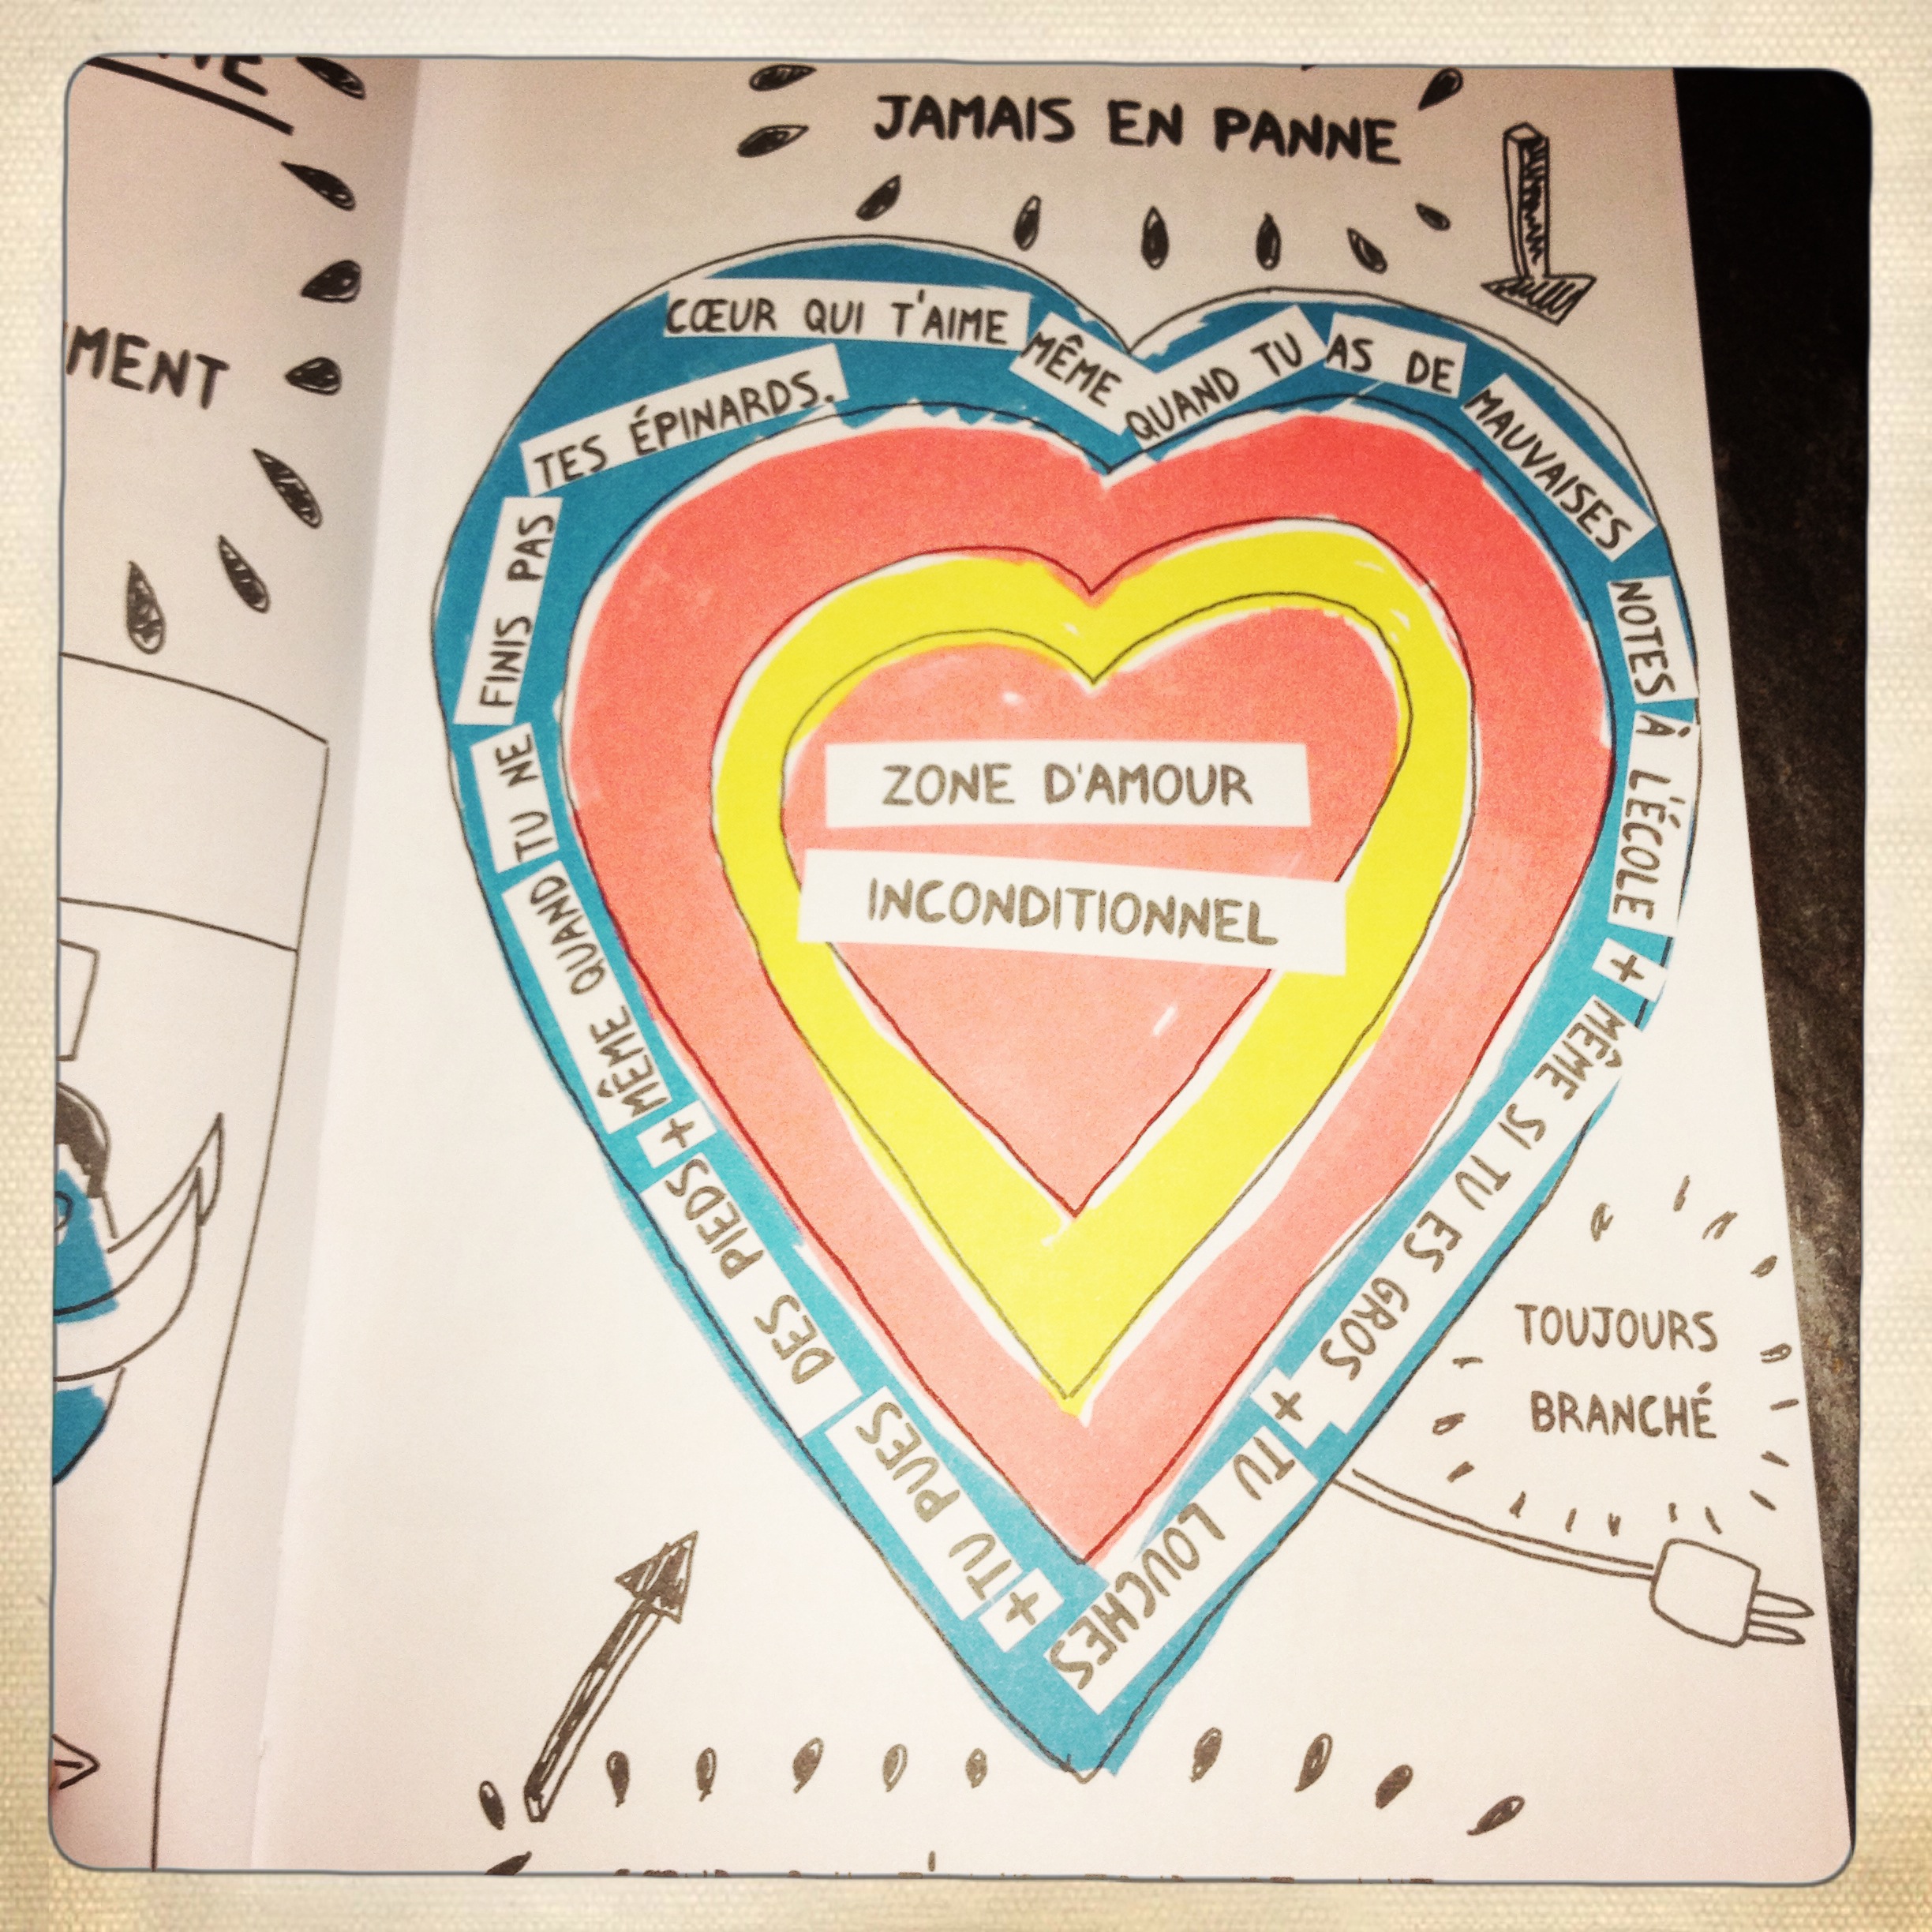 JAMAIS EN PANNE
CŒUR QUI T'AIME
MÊME
QUAND TU
AS DE
MAUVAISES
NOTES
À L'ÉCOLE
+
MÊME SI TU ES GROS
+
TU LOUCHES
+
TU PUES
DES PIEDS
+
MÊME QUAND
TU NE
FINIS PAS
TES ÉPINARDS.
ZONE D'AMOUR
INCONDITIONNEL
TOUJOURS
BRANCHÉ
MENT